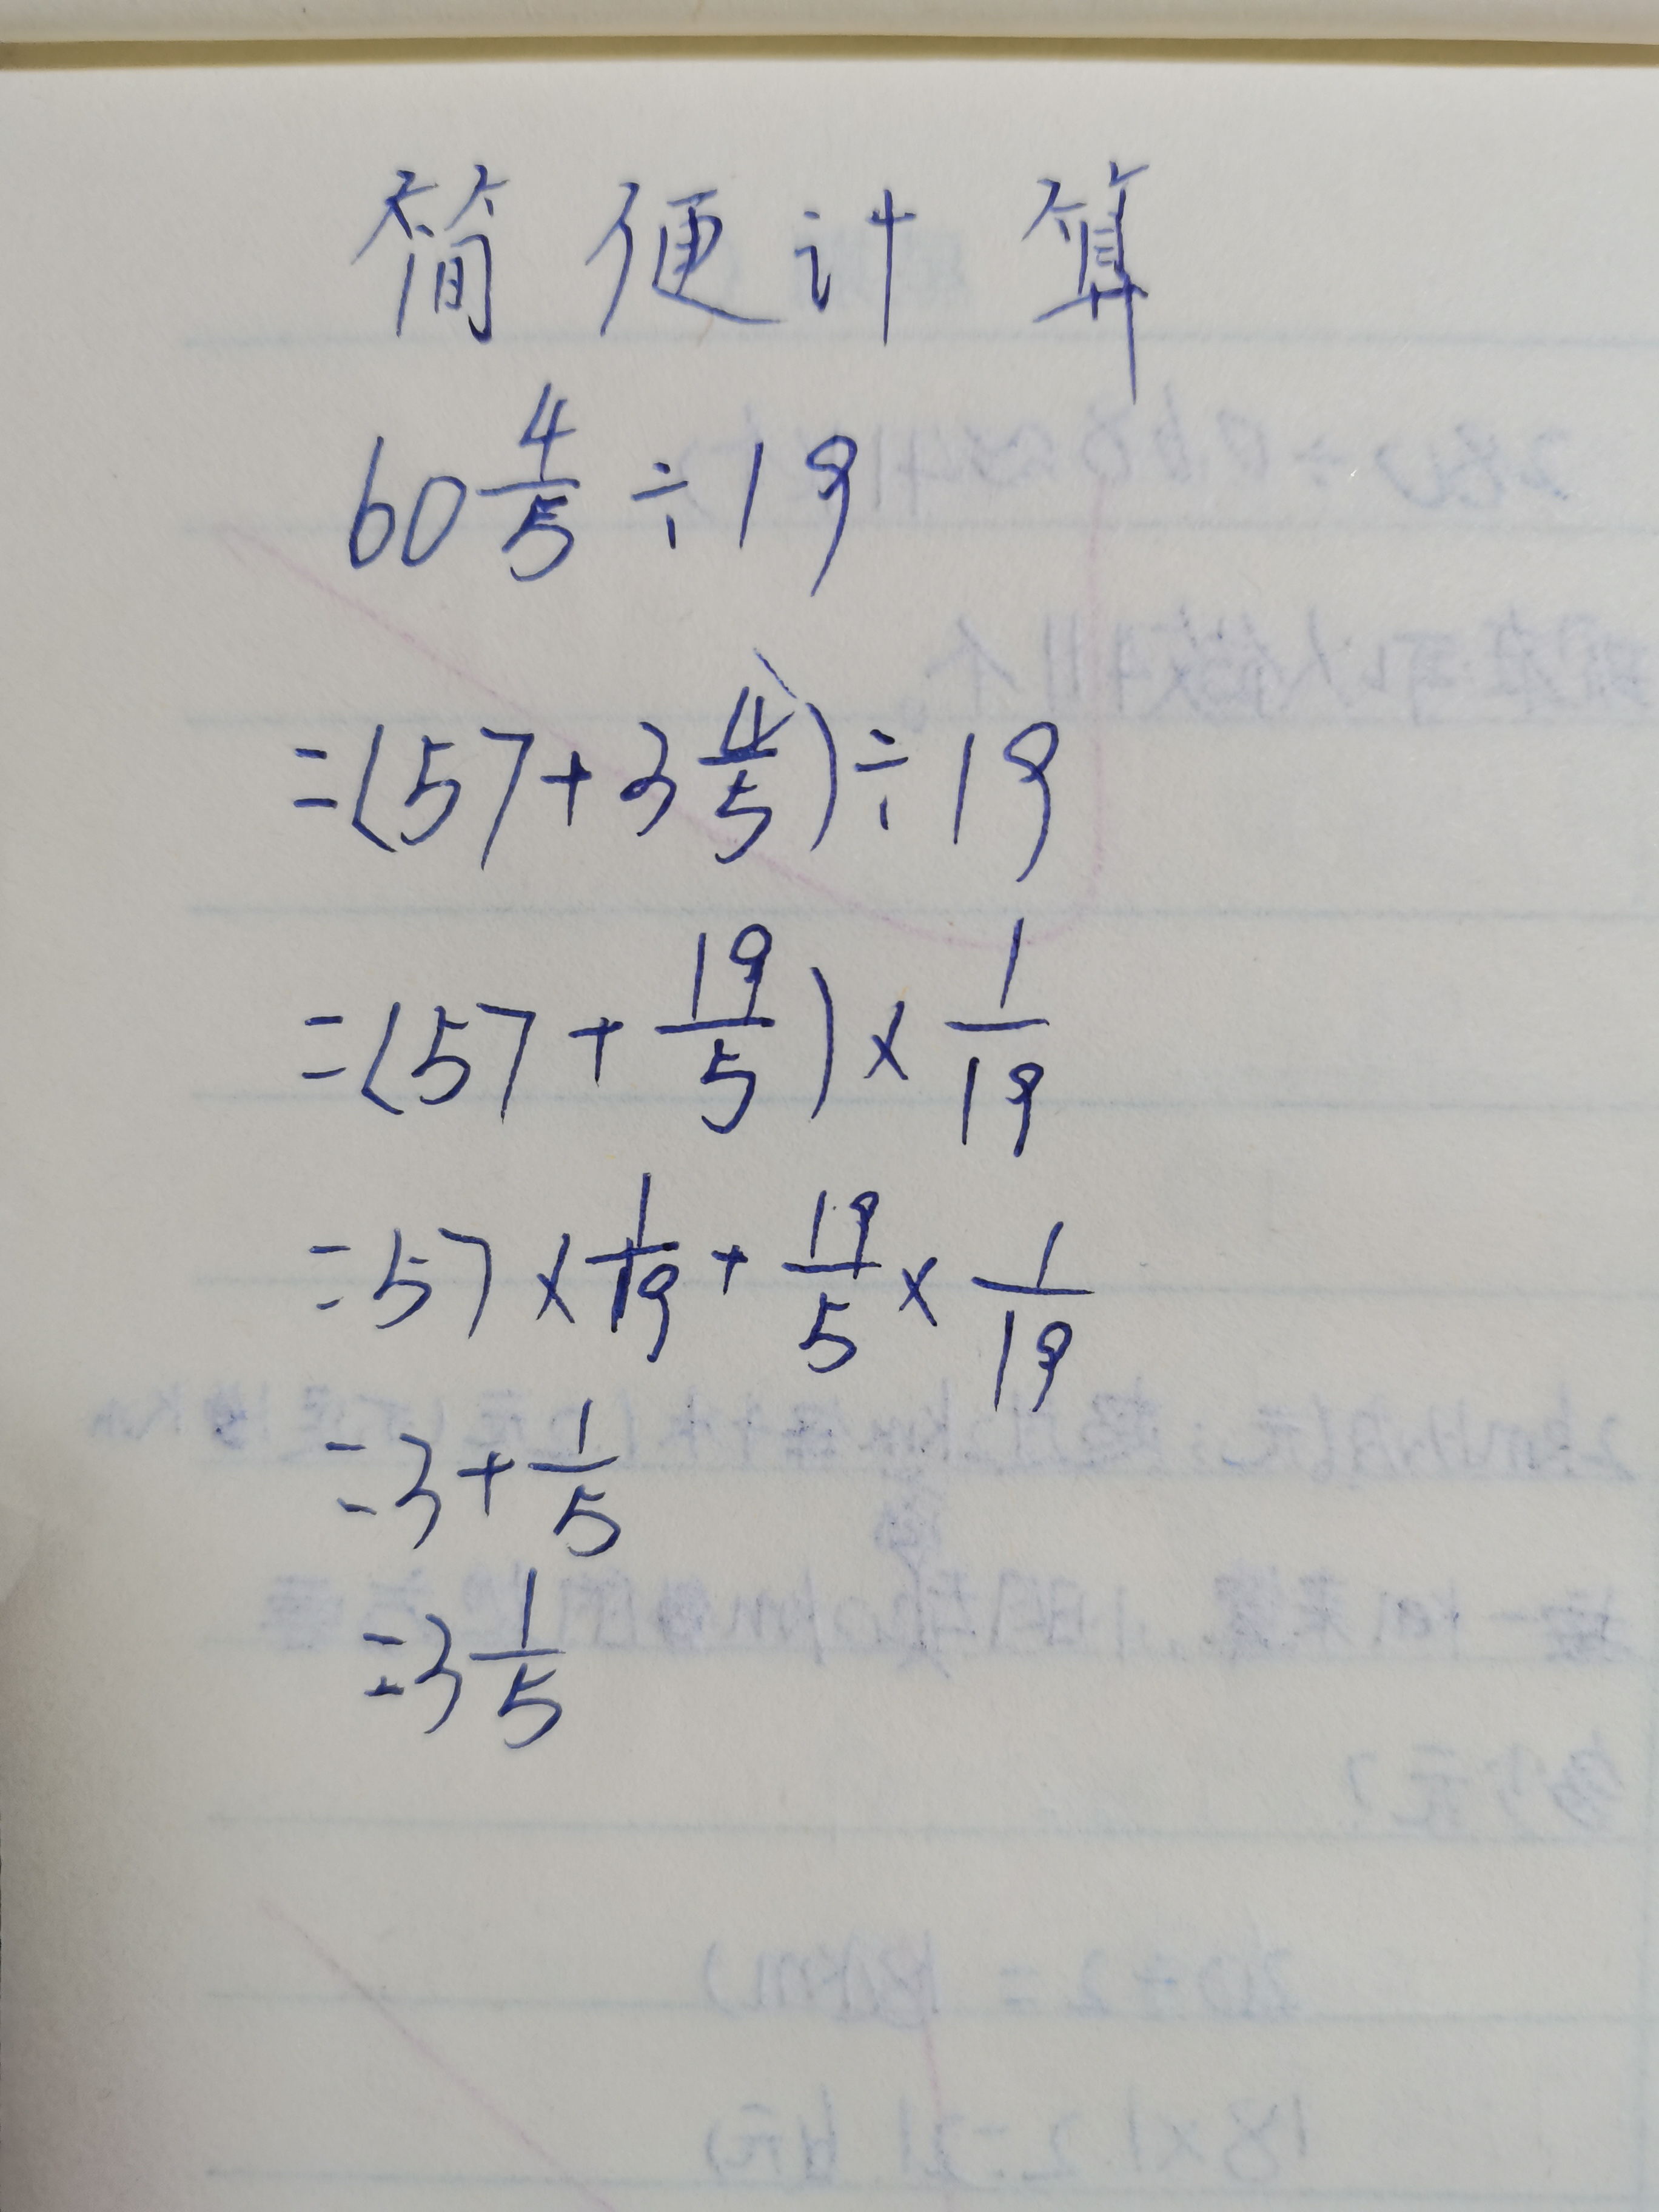 简便计算
60 4/5 ÷ 19
=(57+3 4/5)÷19
=(57+19/5)×1/19
=57×1/19+19/5×1/19
=3+1/5
=3 1/5